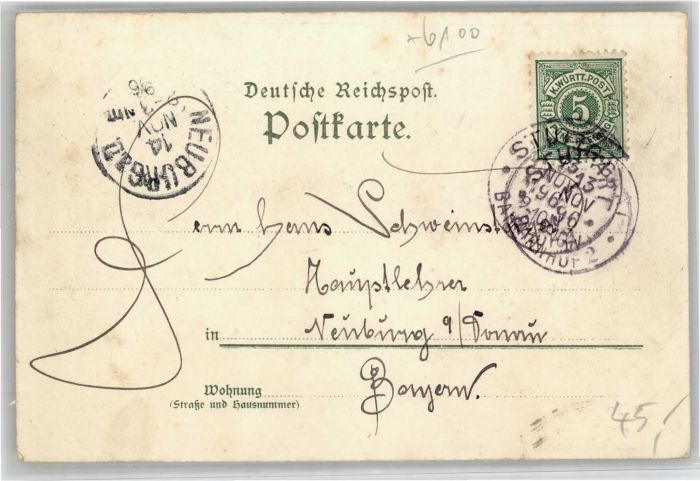 *6100
Deutsche Reichspost.
Postkarte.
K. WÜRTT. POST
5
NEUBURG a/D.
14
NOV
96
STUTTGART
13
NOV
96
BAHNHOF 2
Herrn Hans Schweinst
Hauptlehrer
in Neuburg a/Donau
Bayern.
Wohnung
(Straße und Hausnummer)
45,